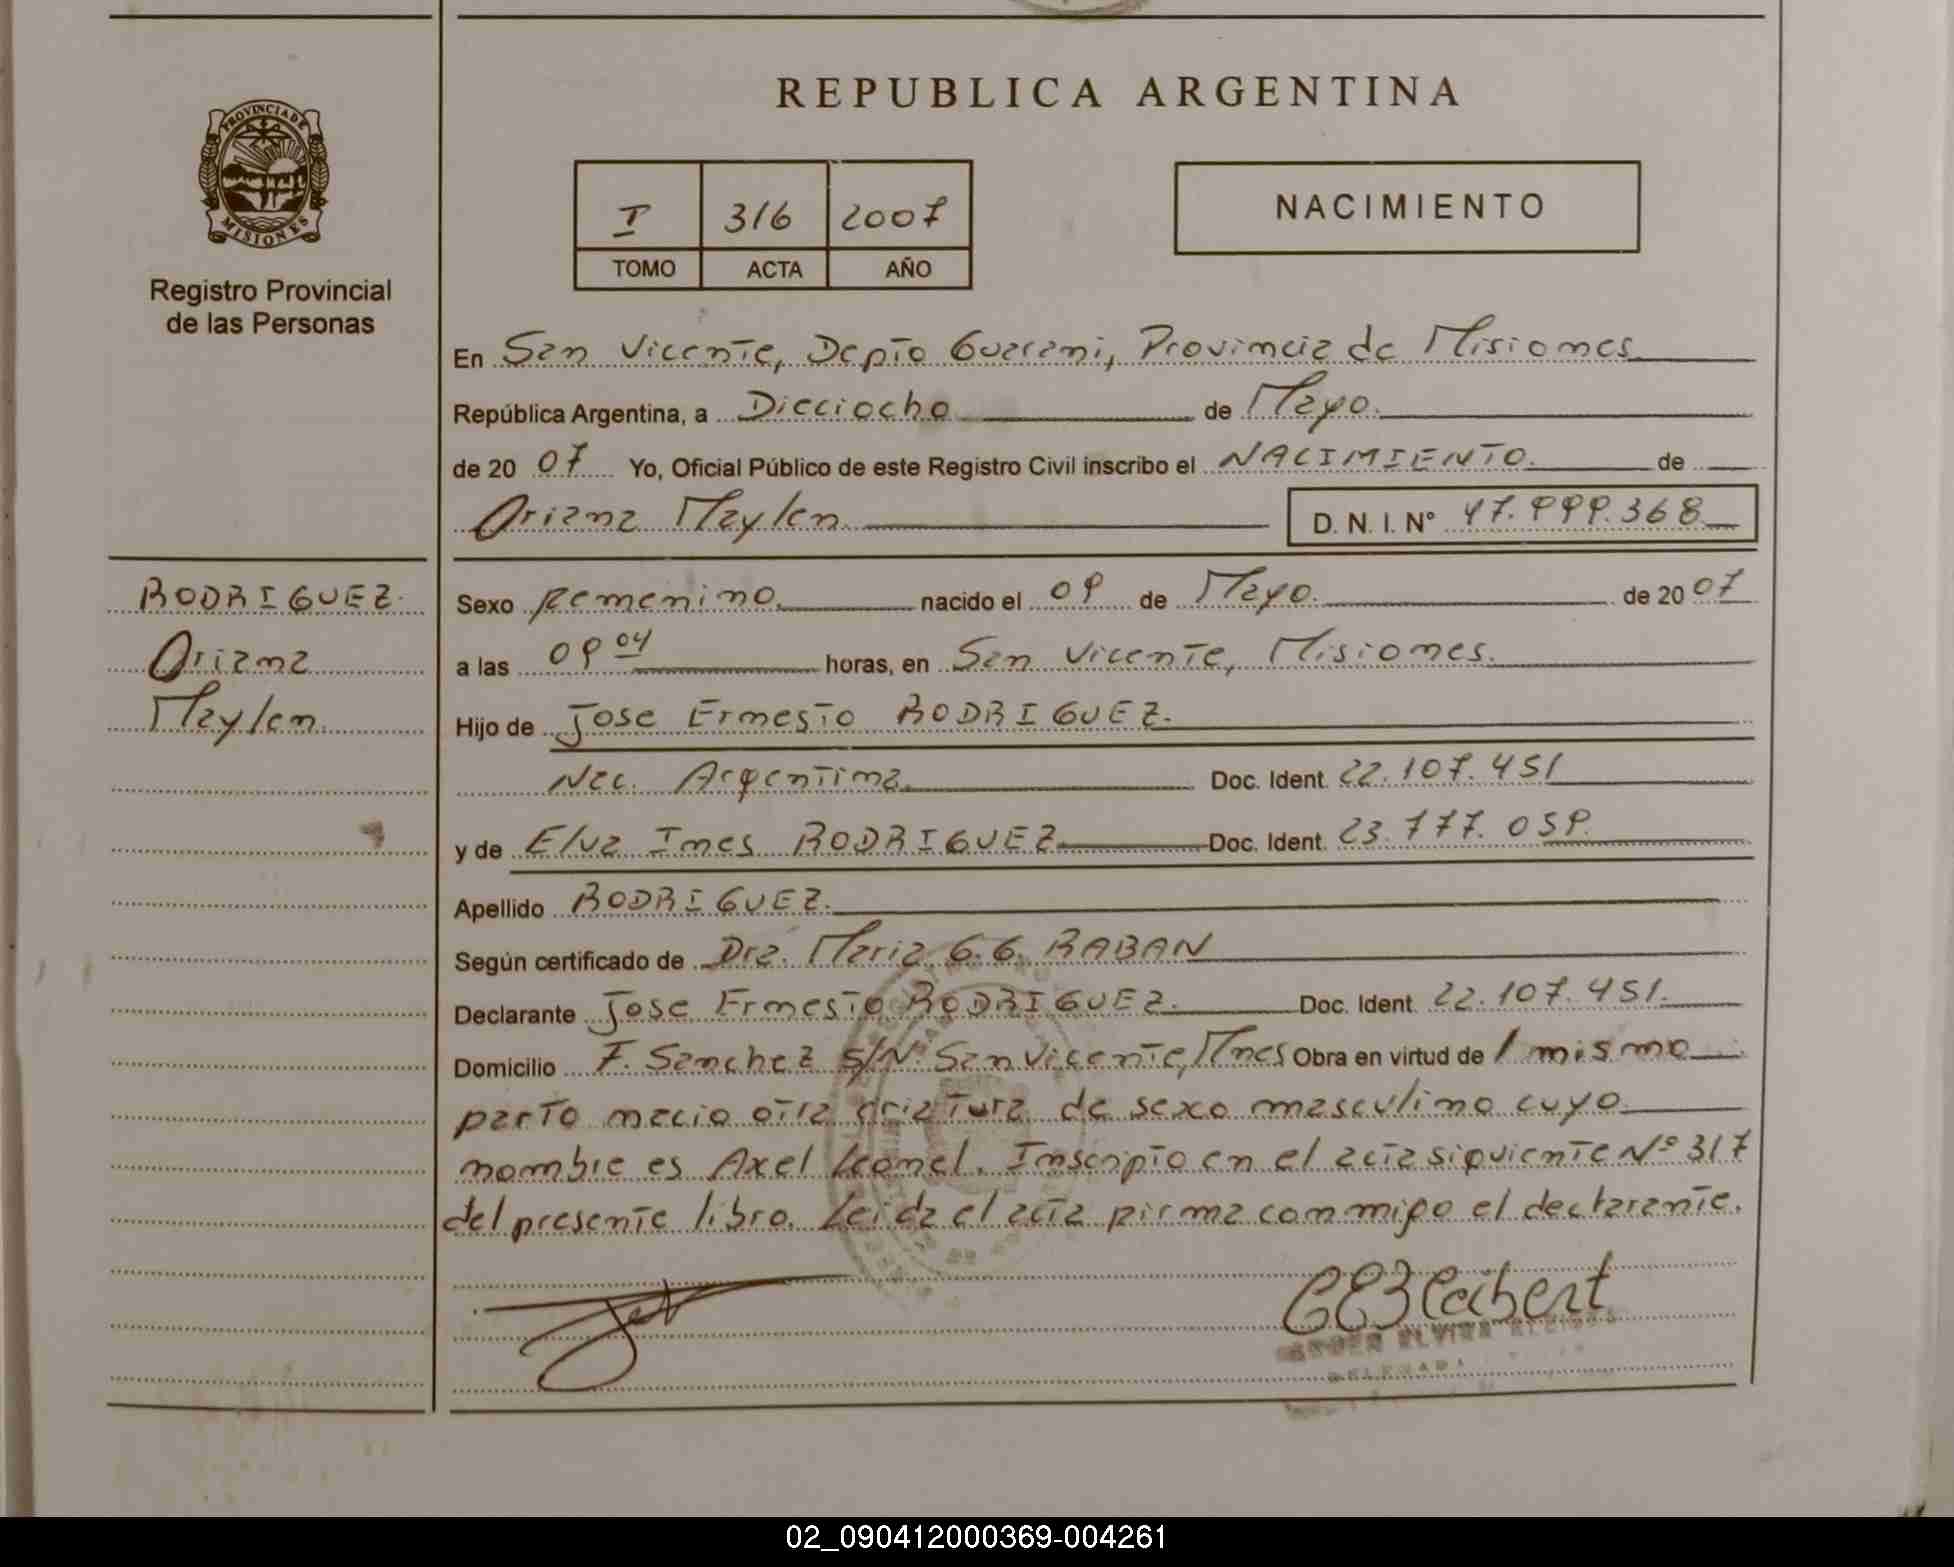 REPUBLICA ARGENTINA
PROVINCIA DE
MISIONES
Registro Provincial
de las Personas
I 316 2007
TOMO ACTA AÑO
NACIMIENTO
En San Vicente, Depto Guarani, Provincia de Misiones
República Argentina, a Dieciocho de Mayo.
de 20 07 Yo, Oficial Público de este Registro Civil inscribo el NACIMIENTO. de
Oriana Maylen. D. N. I. Nº 47.999.368
RODRIGUEZ.
Oriana
Maylen.
Sexo Femenino. nacido el 09 de Mayo. de 20 07
a las 09 04 horas, en San Vicente, Misiones.
Hijo de Jose Ernesto RODRIGUEZ.
Nac. Argentina. Doc. Ident. 22.107.451
y de Elva Ines RODRIGUEZ Doc. Ident. 23.777.059.
Apellido RODRIGUEZ.
Según certificado de Dra. Maria G.G. RABAN
Declarante Jose Ernesto RODRIGUEZ. Doc. Ident. 22.107.451.
Domicilio F. Sanchez S/Nº San Vicente, Mnes Obra en virtud de / mismo
parto nacio otra criatura de sexo masculino cuyo
nombre es Axel Leonel. Inscripto en el acta siguiente Nº 317
del presente libro. Leida el acta firma conmigo el declarante.
02_090412000369-004261